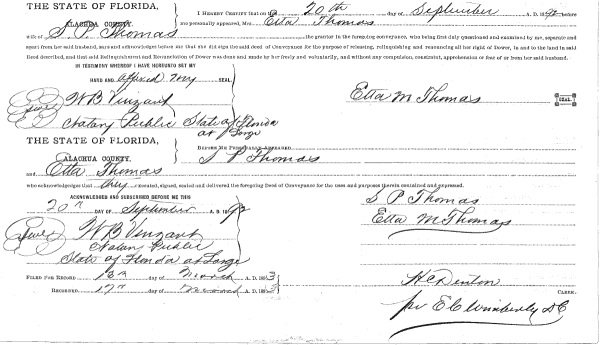 THE STATE OF FLORIDA,
ALACHUA COUNTY.
I HEREBY CERTIFY that on the 20th day of September A. D. 1892 before
me personally appeared, Mrs Etta Thomas
wife of S P Thomas the grantor in the foregoing conveyance, who being first duly questioned and examined by me, separate and
apart from her said husband, says and acknowledges before me that she did sign the said deed of Conveyance for the purpose of releasing, relinquishing and renouncing all her right of Dower, in and to the land in said
Deed described, and that said Relinquishment and Renunciation of Dower was done and made by her freely and voluntarily, and without any compulsion, constraint, apprehension or fear of or from her said husband.
IN TESTIMONY WHEREOF I HAVE HEREUNTO SET MY
HAND AND affixed my SEAL
W B Vinzant
Notary Public State of Florida
at Large
Etta M Thomas SEAL.
THE STATE OF FLORIDA,
ALACHUA COUNTY.
BEFORE ME PERSONALLY APPEARED
S P Thomas
and Etta Thomas
who acknowledged that they executed, signed, sealed and delivered the foregoing Deed of Conveyance for the uses and purposes therein contained and expressed.
ACKNOWLEDGED AND SUBSCRIBED BEFORE ME THIS
20th DAY OF September A. D. 1892
W B Vinzant
Notary Public
State of Florida at Large
S P Thomas
Etta M Thomas
FILED FOR RECORD 13th day of March A. D. 1893
RECORDED 17th day of March A. D. 1893
H C Denton
CLERK.
per E C Wimberly D C